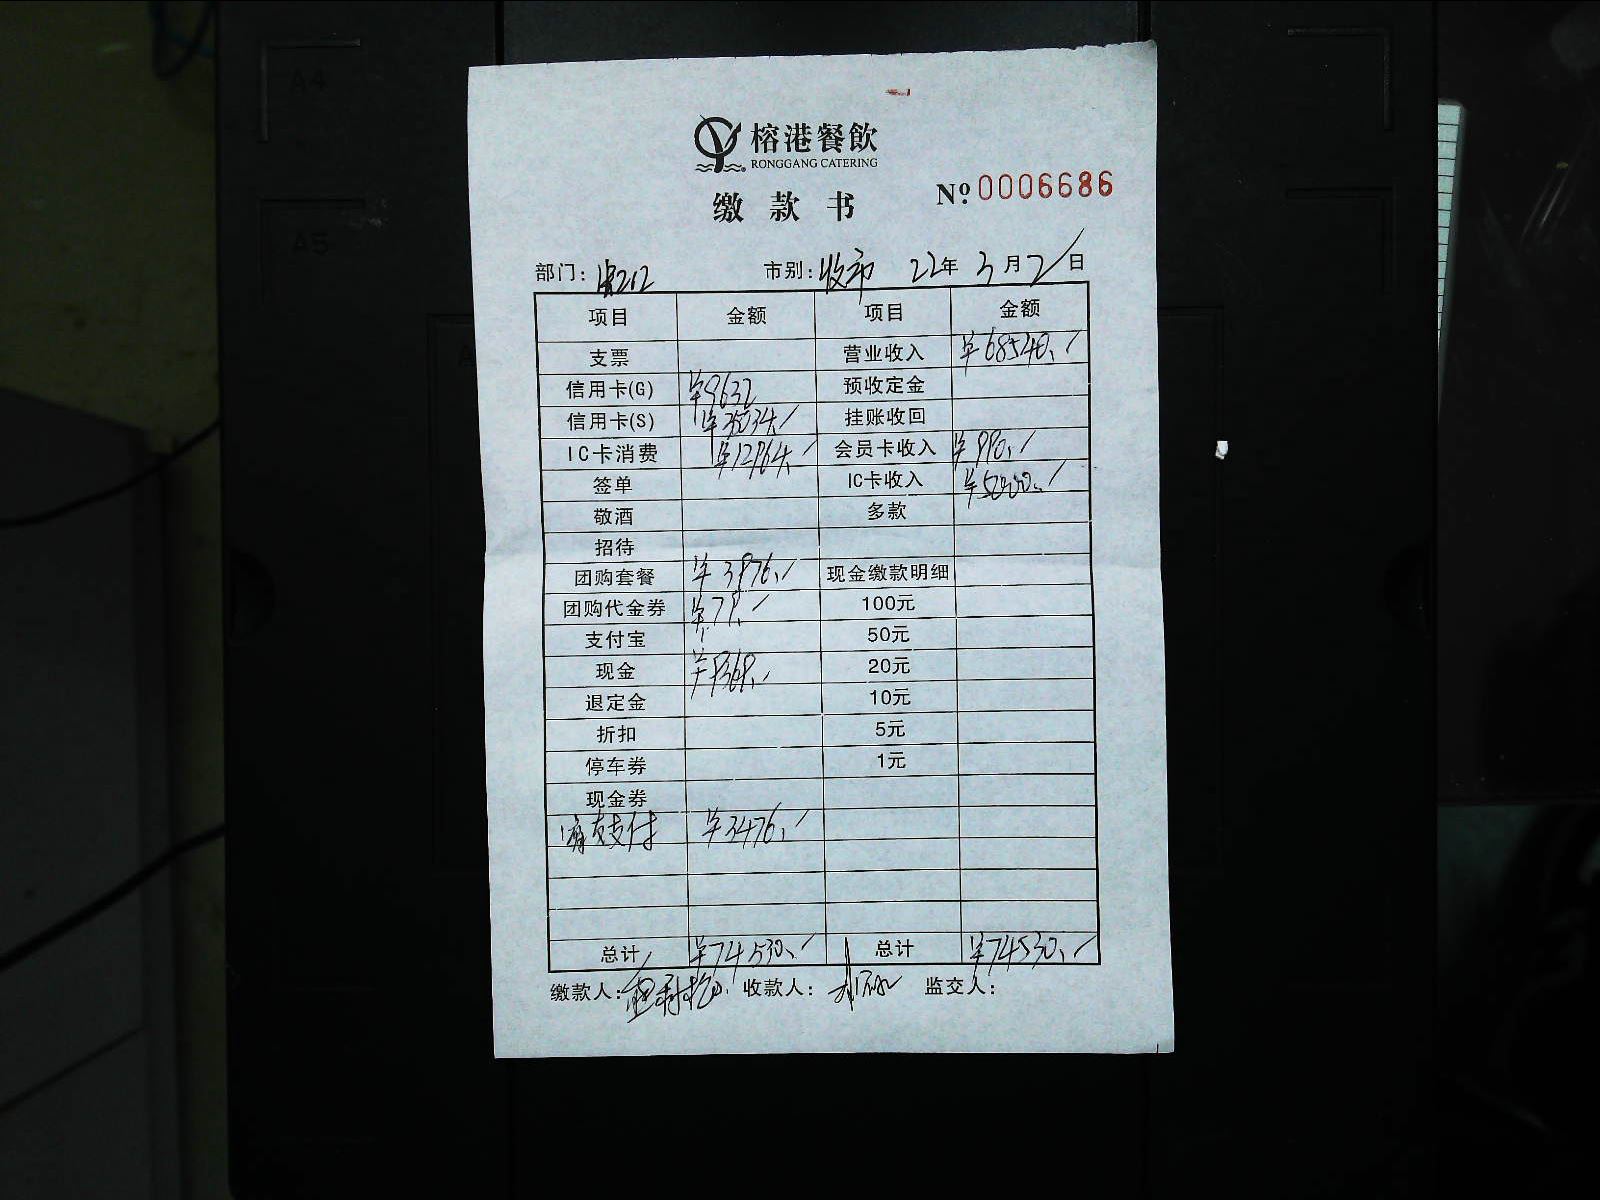 A4
A5
榕港餐飲
RONGGANG CATERING
缴款书
Nº 0006686
部门: 市别: 收市 22年 3月 21日
项目 金额 项目 金额
支票 营业收入 ¥68540.
信用卡(G) ¥9632 预收定金
信用卡(S) ¥35034. 挂账收回
IC卡消费 ¥12964. 会员卡收入 ¥990.
签单 IC卡收入 ¥5000.
敬酒 多款
招待
团购套餐 ¥3976. 现金缴款明细
团购代金券 ¥79. 100元
支付宝 50元
现金 ¥9369. 20元
退定金 10元
折扣 5元
停车券 1元
现金券
支付 ¥3476.
总计 ¥74530. 总计 ¥74530.
缴款人: 收款人: 监交人: